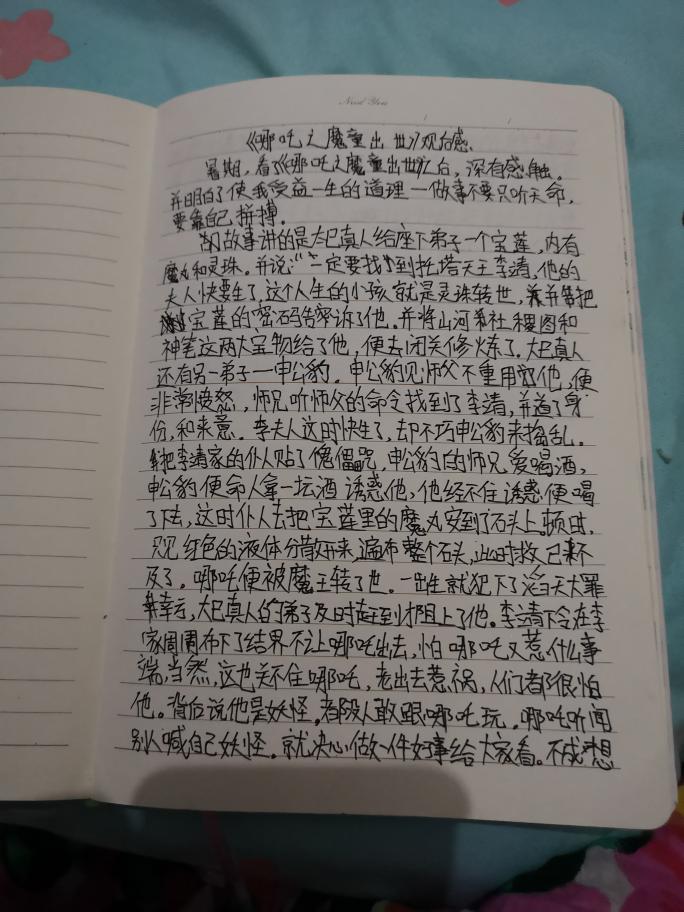 Need You
《哪吒之魔童出世》观后感
暑期,看了《哪吒之魔童出世》之后,深有感触。
并明白了使我受益一生的道理一做事不要只听天命,
要靠自己拼搏。
故事讲的是太乙真人给座下弟子一个宝莲,内有
魔丸和灵珠。并说:“一定要找到托塔天王李靖,他的
夫人快要生了,这个人生的小孩就是灵珠转世,并把
宝莲的密码告诉了他。并将山河社稷图和
神笔这两大宝物给了他,便去闭关修炼了。太乙真人
还有另一弟子一申公豹。申公豹见师父不重用他,便
非常愤怒,师兄听师父的命令找到了李靖,并道了身
份,和来意。李夫人这时快生了,却不巧申公豹来捣乱。
把李靖家的仆人贴了傀儡咒,申公豹的师兄爱喝酒,
申公豹便命人拿一坛酒诱惑他,他经不住诱惑便喝
了下去,这时仆人去把宝莲里的魔丸安到了石头上。顿时,
只见红色的液体分散开来,遍布整个石头,此时救已来不
及了。哪吒便被魔王转了世。一出生就犯下了滔天大罪
幸亏,太乙真人的弟子及时赶到才阻上了他。李靖下令在李
家周围布下了结界不让哪吒出去,怕哪吒又惹什么事
端,当然,这也关不住哪吒,老出去惹祸,人们都很怕
他。背后说他是妖怪。都没人敢跟哪吒玩。哪吒听闻
别人喊自己妖怪。就决心做一件好事给大家看。不成想